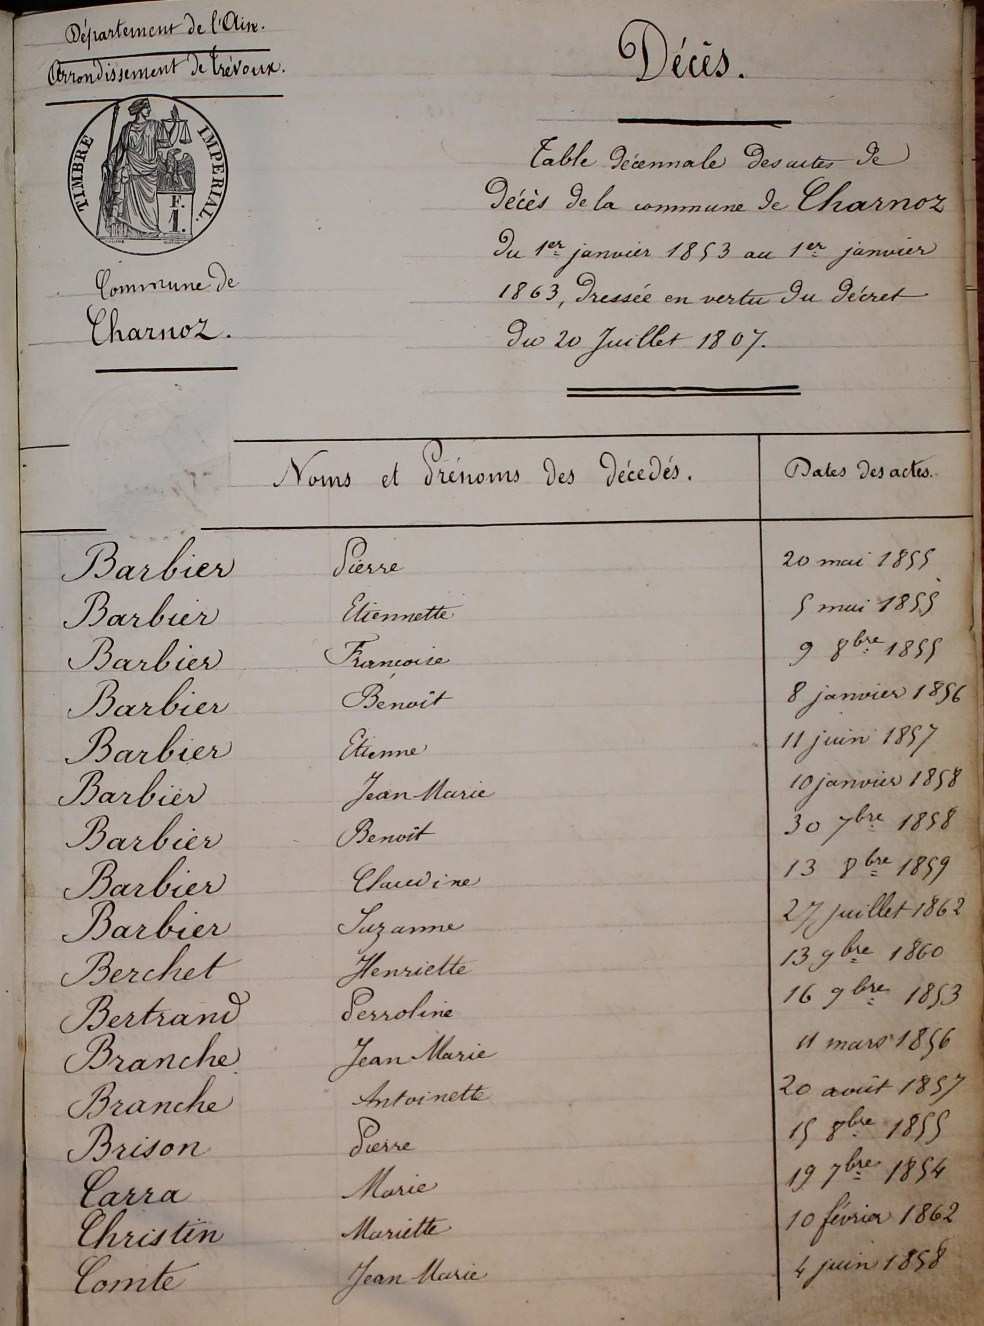 Département de l'Ain.
Arrondissement de Trévoux.
TIMBRE IMPERIAL.
F.
1.
Commune de
Charnoz.
Décès.
Table décennale des actes de
Décès de la commune de Charnoz
du 1er janvier 1853 au 1er janvier
1863, dressée en vertu du décret
du 20 Juillet 1807.
Noms et Prénoms des décedés. Dates des actes.
Barbier Pierre 20 mai 1855
Barbier Etiennette 5 mai 1855
Barbier Françoise 9 8bre 1855
Barbier Benoît 8 janvier 1856
Barbier Etienne 11 juin 1857
Barbier Jean Marie 10 janvier 1858
Barbier Benoît 30 7bre 1858
Barbier Claudine 13 8bre 1859
Barbier Suzanne 27 juillet 1862
Berchet Henriette 13 9bre 1860
Bertrand Perroline 16 9bre 1853
Branche Jean Marie 11 mars 1856
Branche Antoinette 20 août 1857
Brison Pierre 15 8bre 1855
Carra Marie 19 7bre 1854
Christin Mariette 10 février 1862
Comte Jean Marie 4 juin 1858